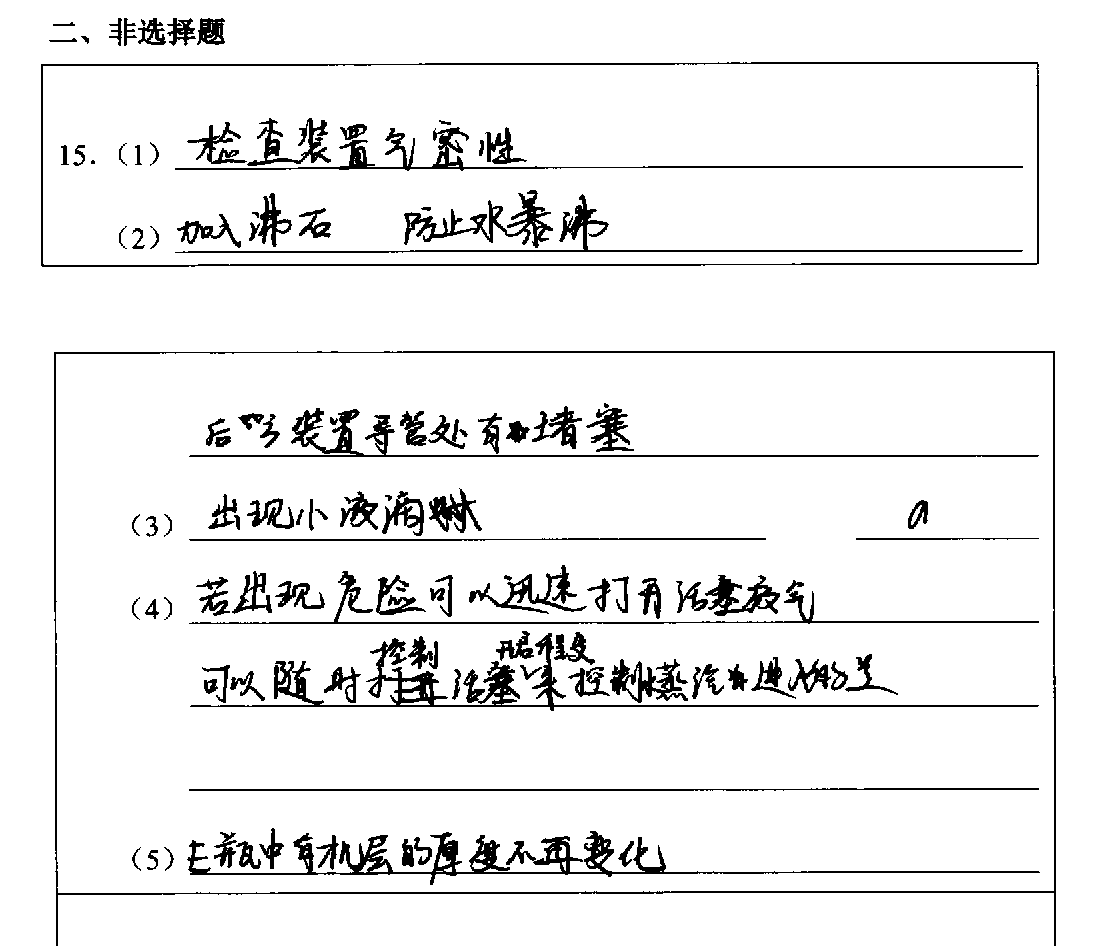 二、非选择题
15.（1）检查装置气密性
（2）加入沸石 防止水暴沸
后 装置导管处有 堵塞
（3）出现小液滴 a
（4）若出现危险可以迅速打开活塞放气
控制 开启程度
可以随时打开活塞来控制蒸汽 进入的量
（5）E瓶中有机层的厚度不再变化